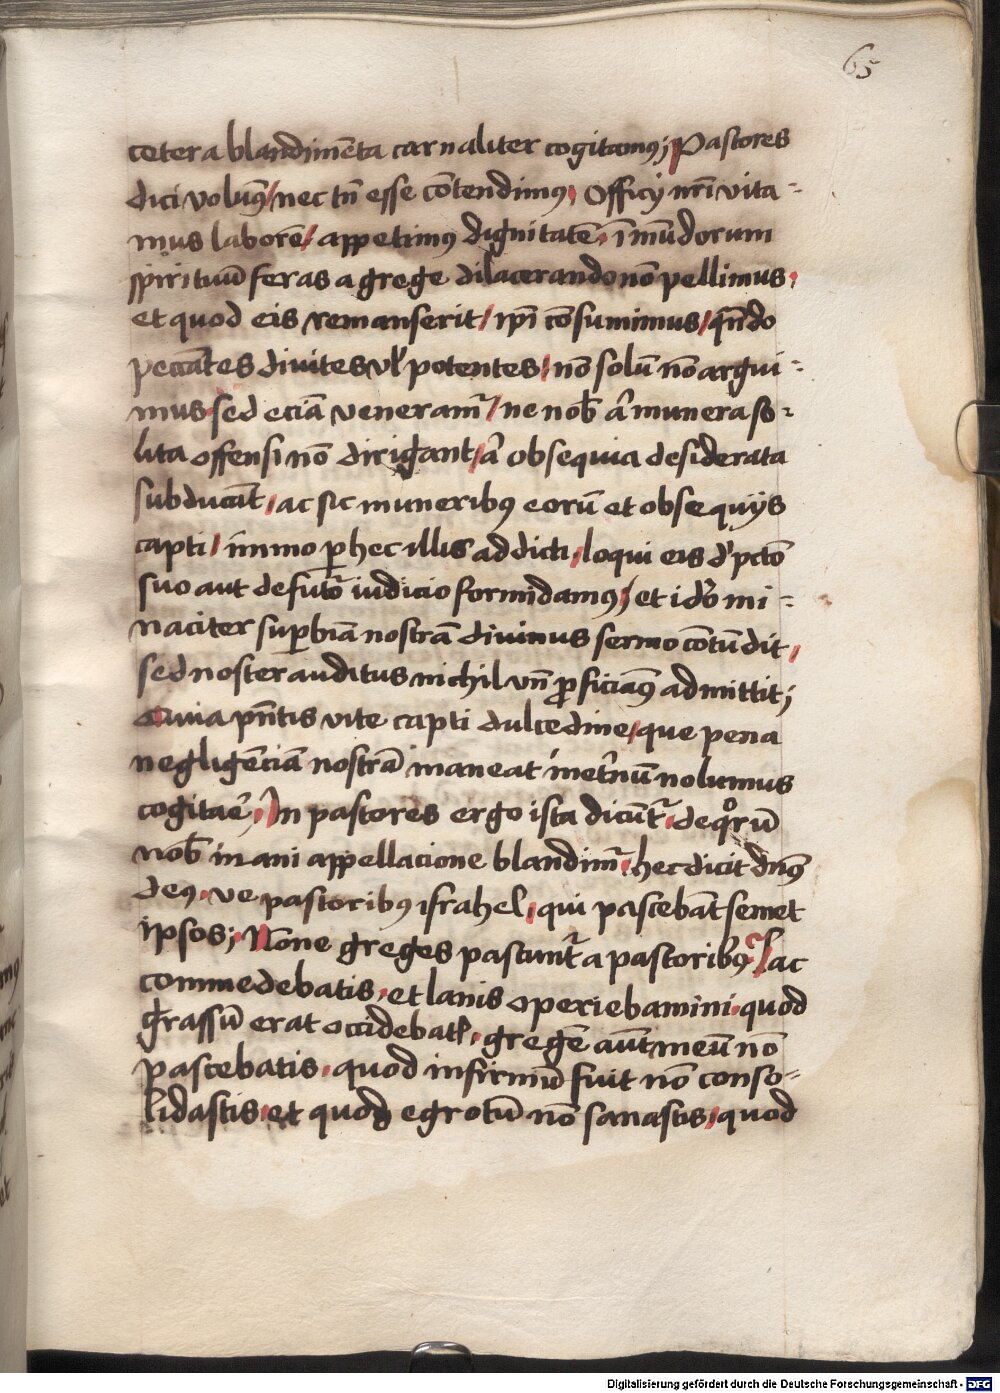 65
cetera blandimēta carnaliter cogitamꝰ; Pastores
dici volumꝰ / nec tn̄ esse cōtendimꝰ, Officÿ nr̄i vita-
mus laborē / appetimꝰ dignitatē. īmūdorum
spirituū feras a grege dilacerando nō pellimus,
et quod eis remanserit / ip̄i cōsumimus / qn̄do
peccātes diuites vl' potentes, nō solū nō argui-
mus. sed eciā veneramr̄ / ne nob̄ aī munera so-
lita offensi nō dirigant / aī obsequia desiderata
subducāt, ac sic muneribꝰ eorū et obsequijs
capti / immo ꝑ hec illis addicti, loqui eis d' pctō
suo aut de futō iudicio formidamꝰ; et idō mi-
naciter suꝑbiā nostrā diuinus sermo cōtūdit,
sed noster auditus nichil vn̄ ꝓficiamꝰ admittit;
Quia pn̄tis vite capti dulcedine, que pena
negligēciā nostrā maneat inet'nū nolumus
cogitar̄e, In pastores ergo ista dicūtr̄, de qͦrū
nob̄ inani appellacione blandimr̄, hec dicit dn̄s
deꝰ. ve pastoribꝰ israhel, qui pascebāt semet
ipsos; Nōne greges pascuntr̄ a pastoribꝰ? lac
commedebatis, et lanis operiebamini. quod
grassū erat occidebatis, gregē aūt meū nō
pascebatis, quod infirmū fuit nō conso-
lidastis, et quod egrotū nō sanastis, quod
Digitalisierung gefördert durch die Deutsche Forschungsgemeinschaft - DFG